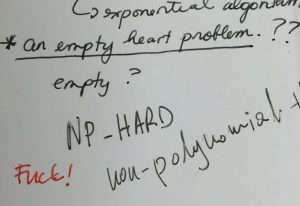 ↳ exponential algorithm
* An empty heart problem. ??
empty ?
NP-HARD
non-polynomial
Fuck!